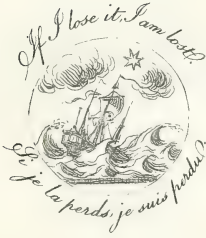 If I lose it, I am lost?
Si je la perds, je suis perdu?